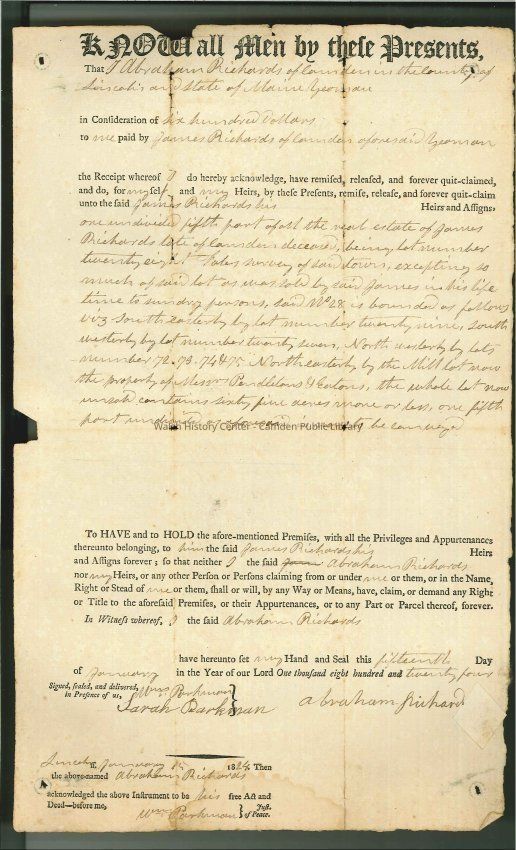 KNOW all Men by these Presents,
That I Abraham Richards of Camden in the County of
Lincoln and State of Maine Yeoman
in Consideration of six hundred Dollars
to me paid by James Richards of Camden aforesaid Yeoman
the Receipt whereof I do hereby acknowledge, have remised, released, and forever quit-claimed,
and do, for myself and my Heirs, by these Presents, remise, release, and forever quit-claim
unto the said James Richards his Heirs and Assigns,
one undivided fifth part of all the real estate of James
Richards late of Camden deceased, being lot number
twenty eight survey of said town, excepting so
much of said lot as was sold by said James in his life
time to sundry persons, said No 28 is bounded as follows
viz Southeasterly by lot number twenty nine, South
westerly by lot number twenty seven, North westerly by lots
number 72. 73. 74 & 75. Northeasterly by the Mill lot now
the property of Messrs Pendletons & Eatons, the whole lot now
unsold contains sixty five acres more or less, one fifth
part to be conveyed
Walsh History Center - Camden Public Library
To HAVE and to HOLD the afore-mentioned Premises, with all the Privileges and Appurtenances
thereunto belonging, to him the said James Richards his Heirs
and Assigns forever; so that neither I the said Abraham Richards
nor my Heirs, or any other Person or Persons claiming from or under me or them, or in the Name,
Right or Stead of me or them, shall or will, by any Way or Means, have, claim, or demand any Right
or Title to the aforesaid Premises, or their Appurtenances, or to any Part or Parcel thereof, forever.
In Witness whereof, I the said Abraham Richards
have hereunto set my Hand and Seal this fifteenth Day
of January in the Year of our Lord One thousand eight hundred and twenty four
Signed, sealed, and delivered,
in Presence of us,
Wm Parkman
Sarah Parkman
abraham Richard
Lincoln ss. January 15 1824 Then
the above-named Abraham Richards
acknowledged the above Instrument to be his free Act and
Deed—before me,
Wm Parkman Just. of Peace.